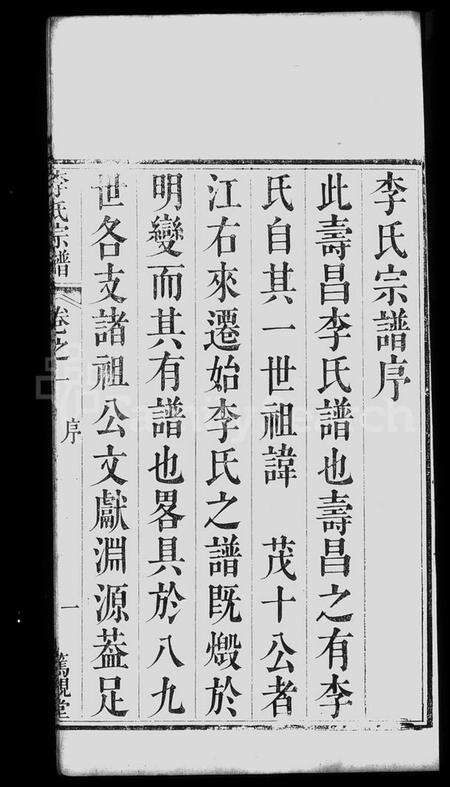 李氏宗譜序
此壽昌李氏譜也壽昌之有李
氏自其一世祖諱　茂十公者
江右來遷始李氏之譜既燬於
明變而其有譜也畧具於八九
世各支諸祖公文獻淵源葢足
李氏宗譜　卷之一　序　一　篤親堂